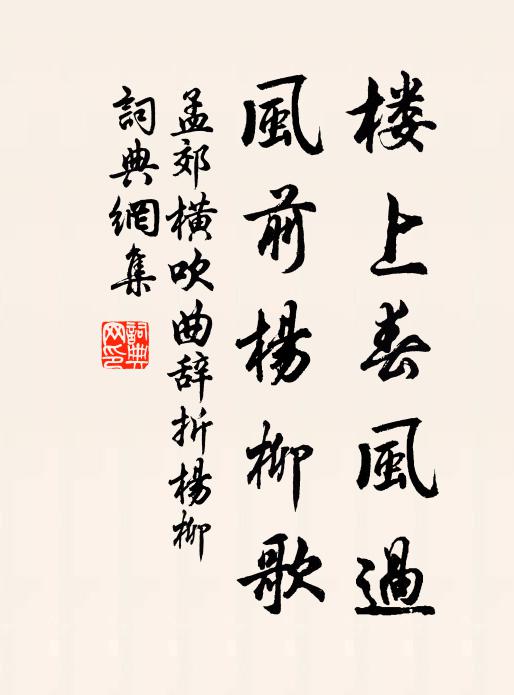 楼上春風過
風前楊柳歌
孟郊橫吹曲辞折楊柳
詞典網集
詞典网印